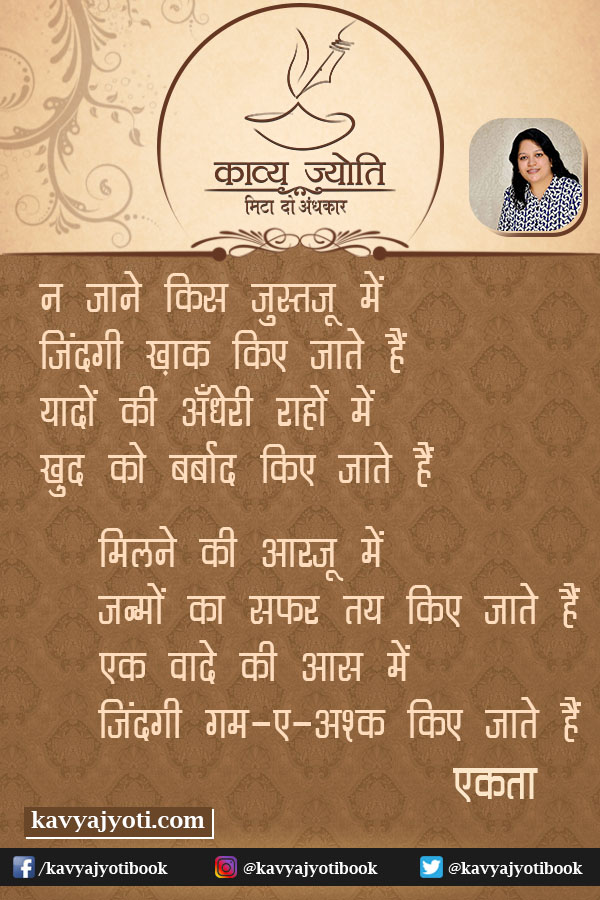 काव्य ज्योति
मिटा दो अंधकार
न जाने किस जुस्तजू में
जिंदगी ख़ाक किए जाते हैं
यादों की अँधेरी राहों में
खुद को बर्बाद किए जाते हैं
मिलने की आरजू में
जन्मों का सफर तय किए जाते हैं
एक वादे की आस में
जिंदगी गम-ए-अश्क किए जाते हैं
एकता
kavyajyoti.com
/kavyajyotibook @kavyajyotibook @kavyajyotibook